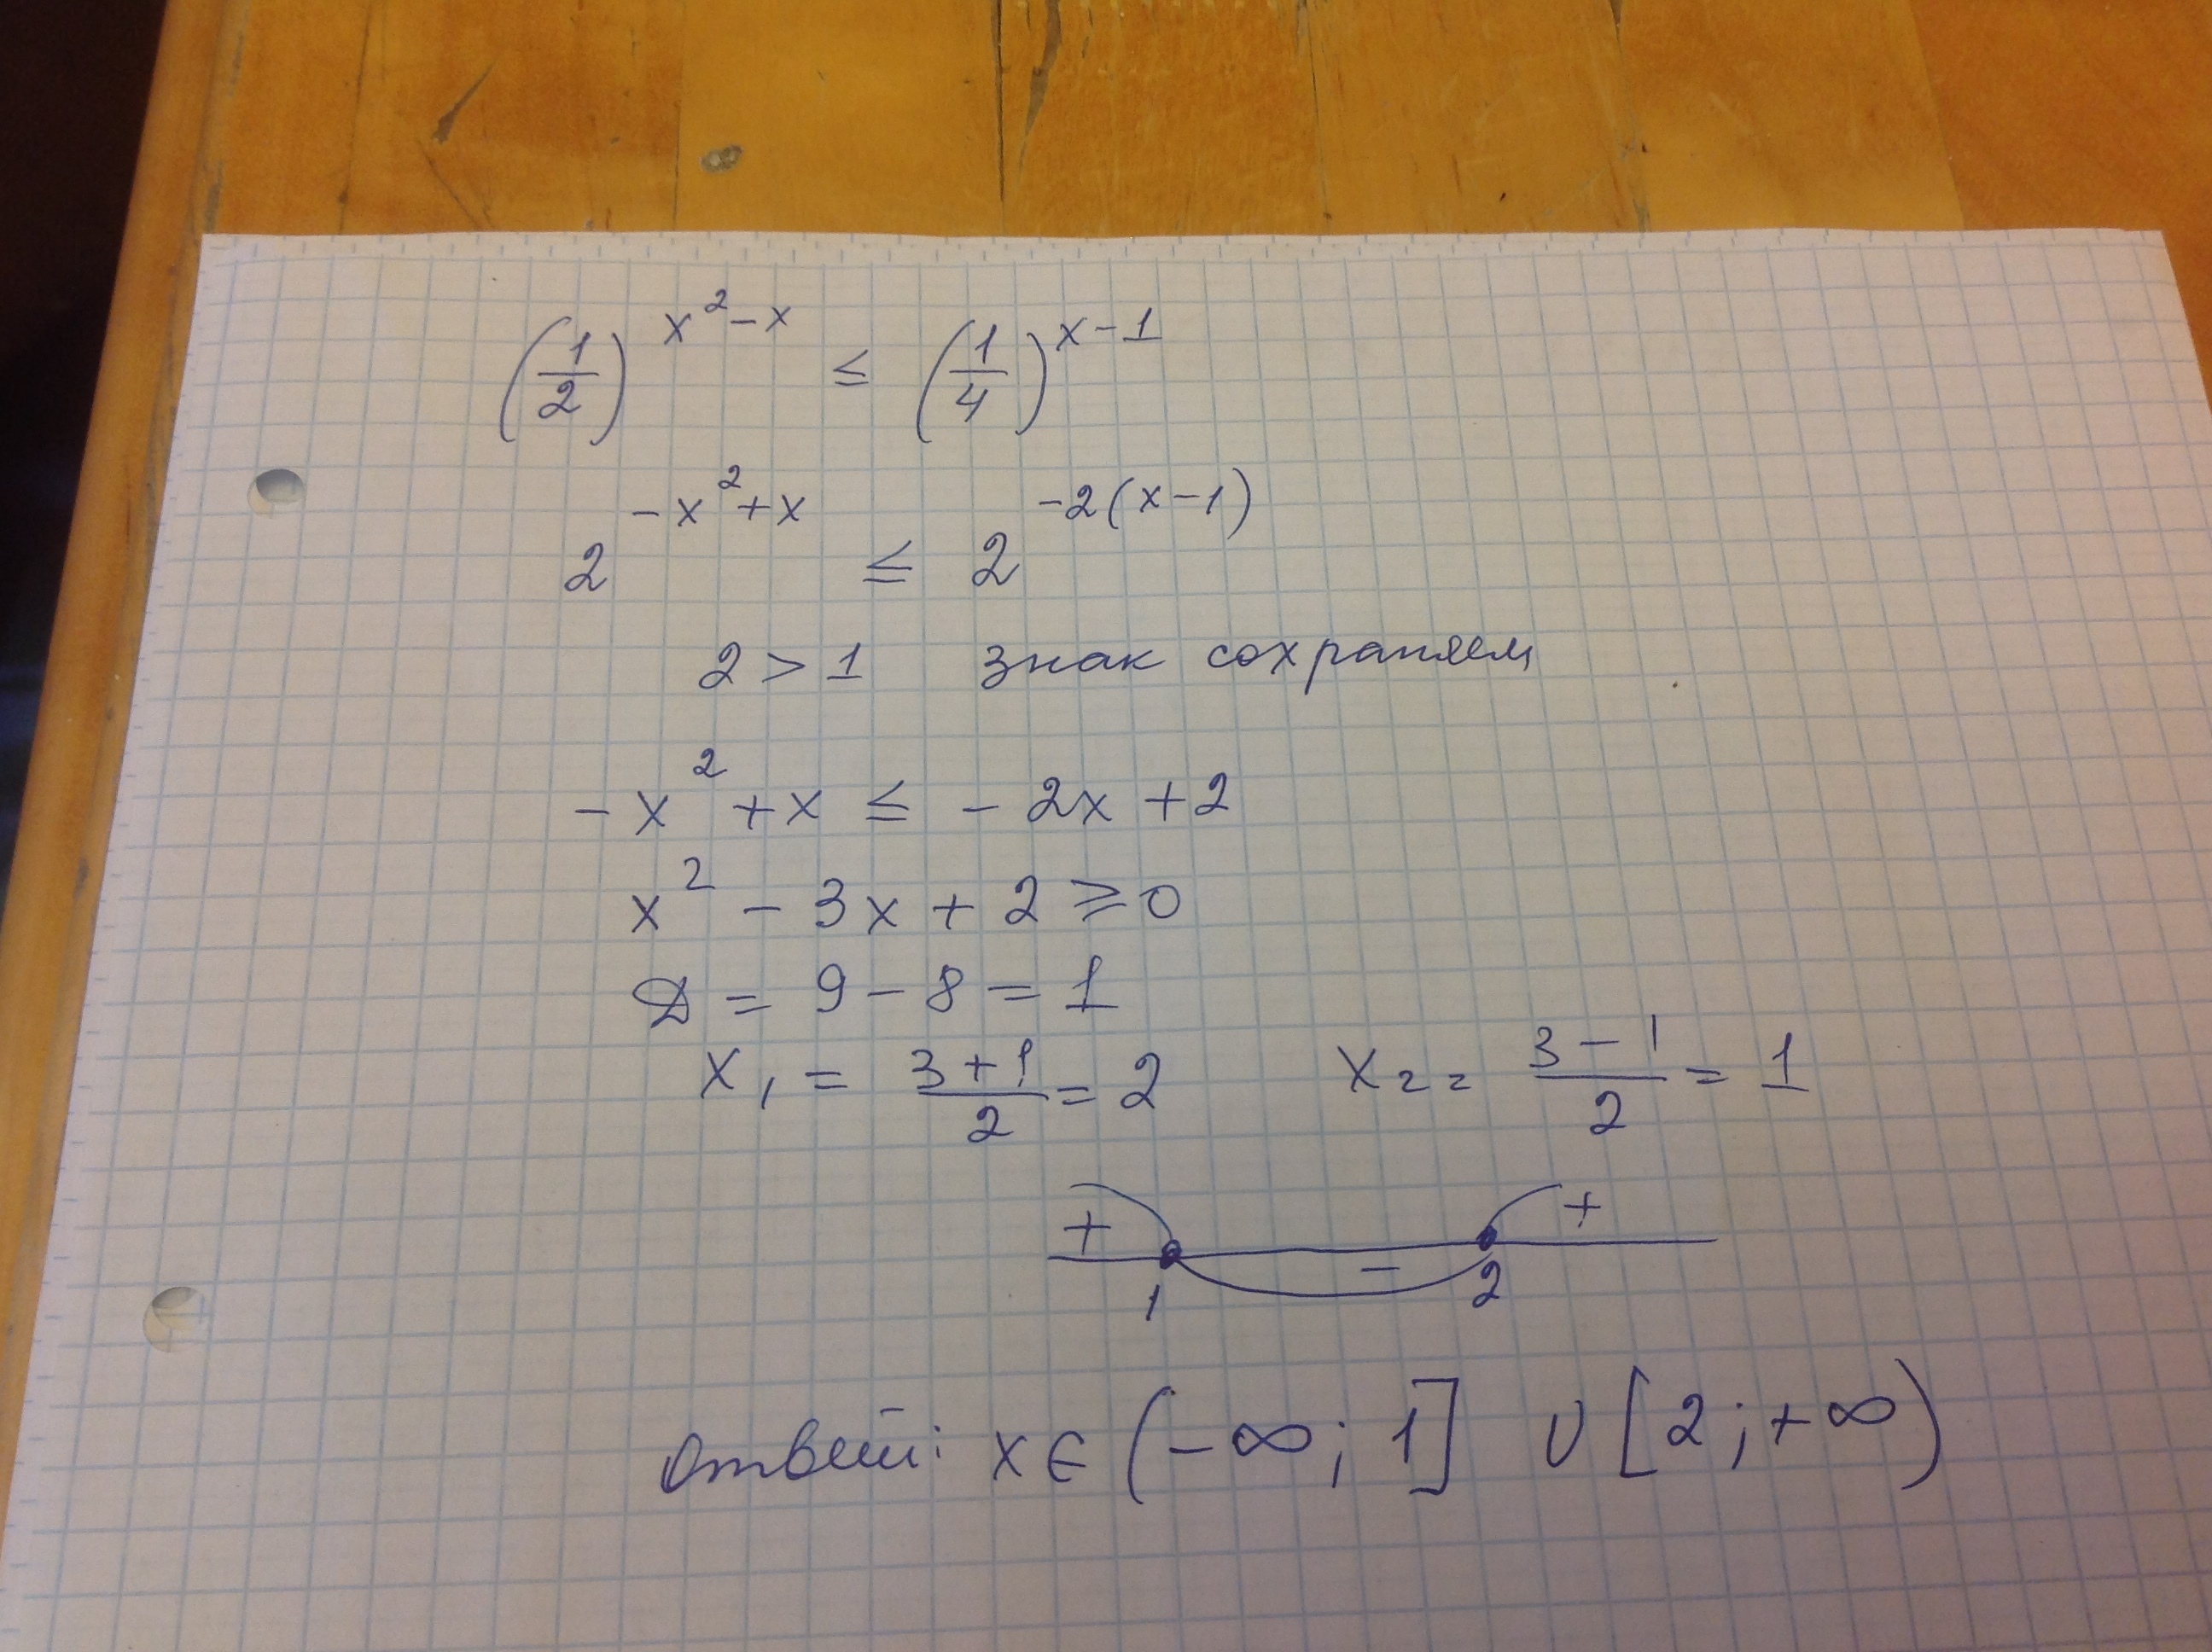 (1/2)^(x²-x) ≤ (1/4)^(x-1)
2^(-x²+x) ≤ 2^(-2(x-1))
2 > 1 знак сохраняем
-x² + x ≤ - 2x + 2
x² - 3x + 2 ⩾ 0
D = 9 - 8 = 1
x₁ = (3+1)/2 = 2 x₂ = (3-1)/2 = 1
+ - +
1 2
Ответ: x ∈ (-∞; 1] ∪ [2; +∞)